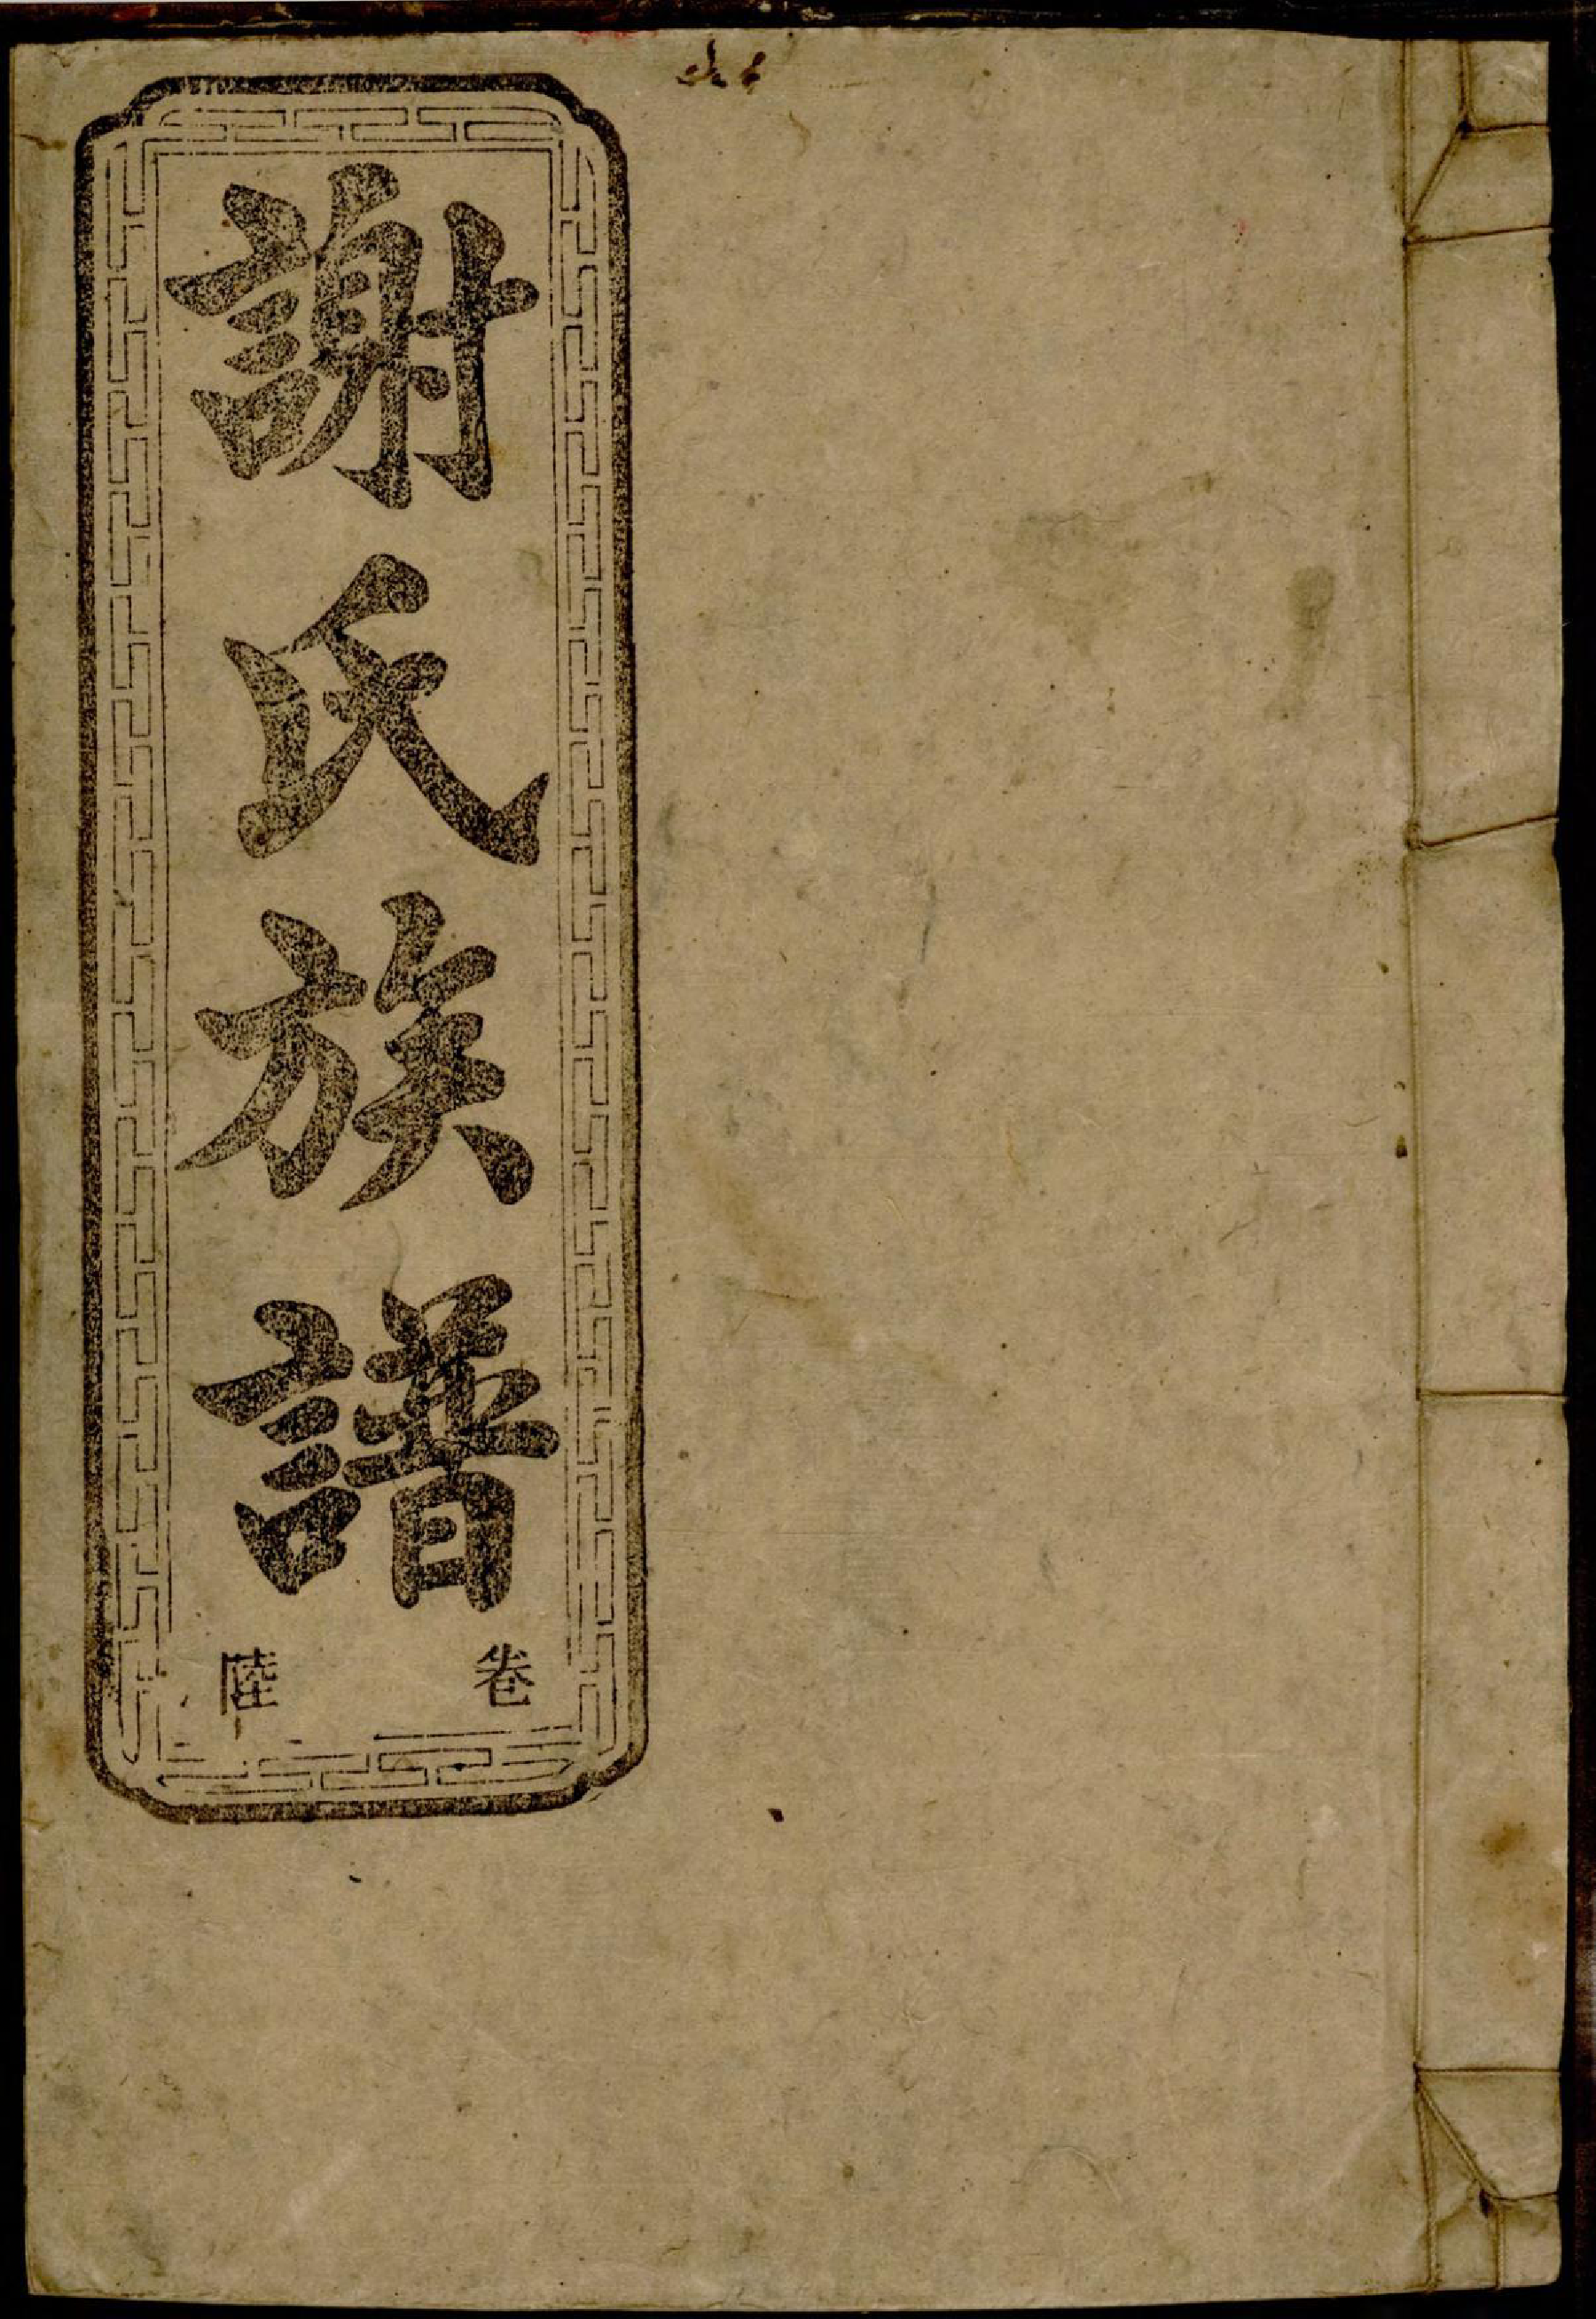 謝氏族譜
卷陸